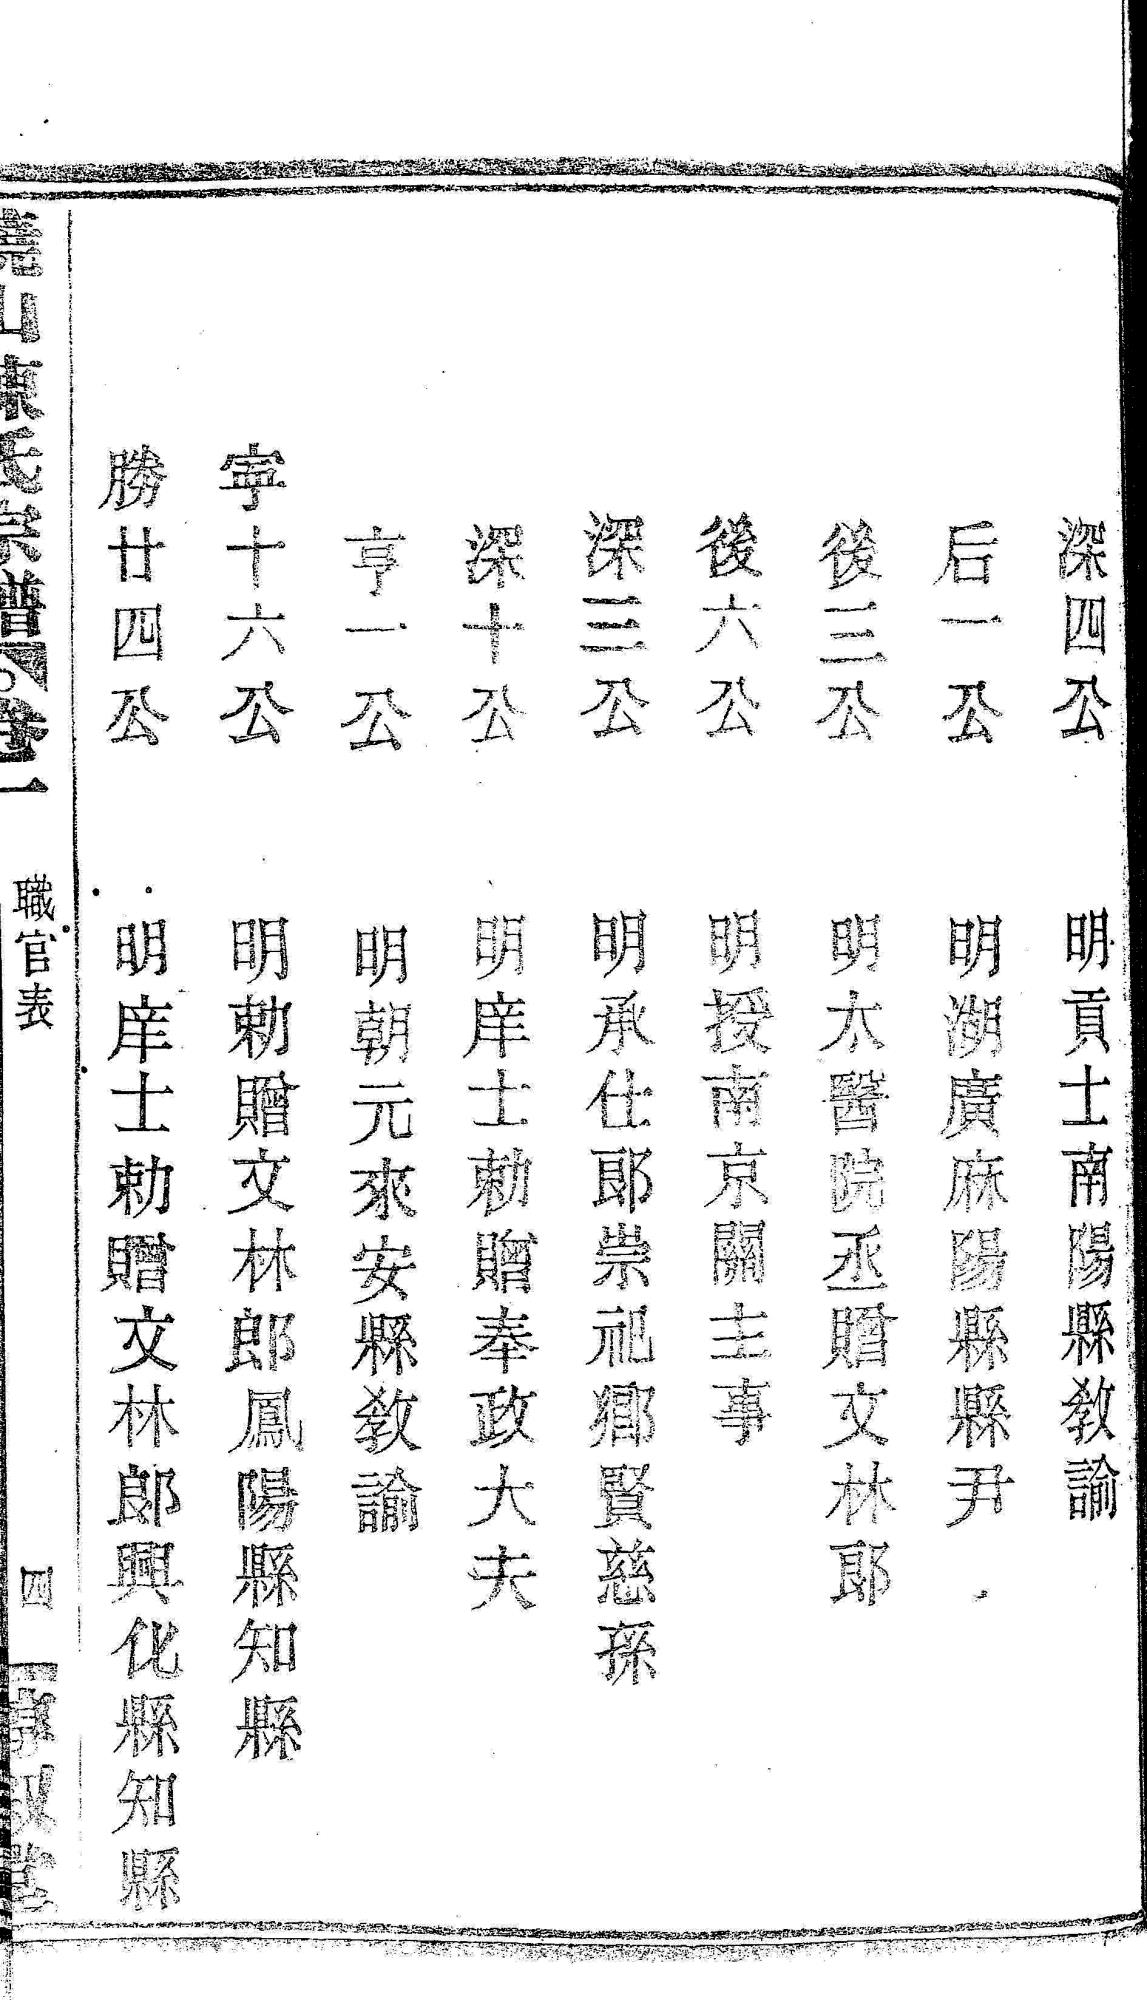 深四公　明貢士南陽縣教諭
后一公　明湖廣麻陽縣縣尹
後三公　明太醫院丞贈文林郎
後六公　明授南京關主事
深三公　明承仕郎崇祀鄉賢慈孫
深十公　明庠士勅贈奉政大夫
亨一公　明朝元來安縣教諭
寧十六公　明勅贈文林郎鳳陽縣知縣
勝廿四公　明庠士勅贈文林郎興化縣知縣
山陳氏宗譜　卷一　職官表　四　堂